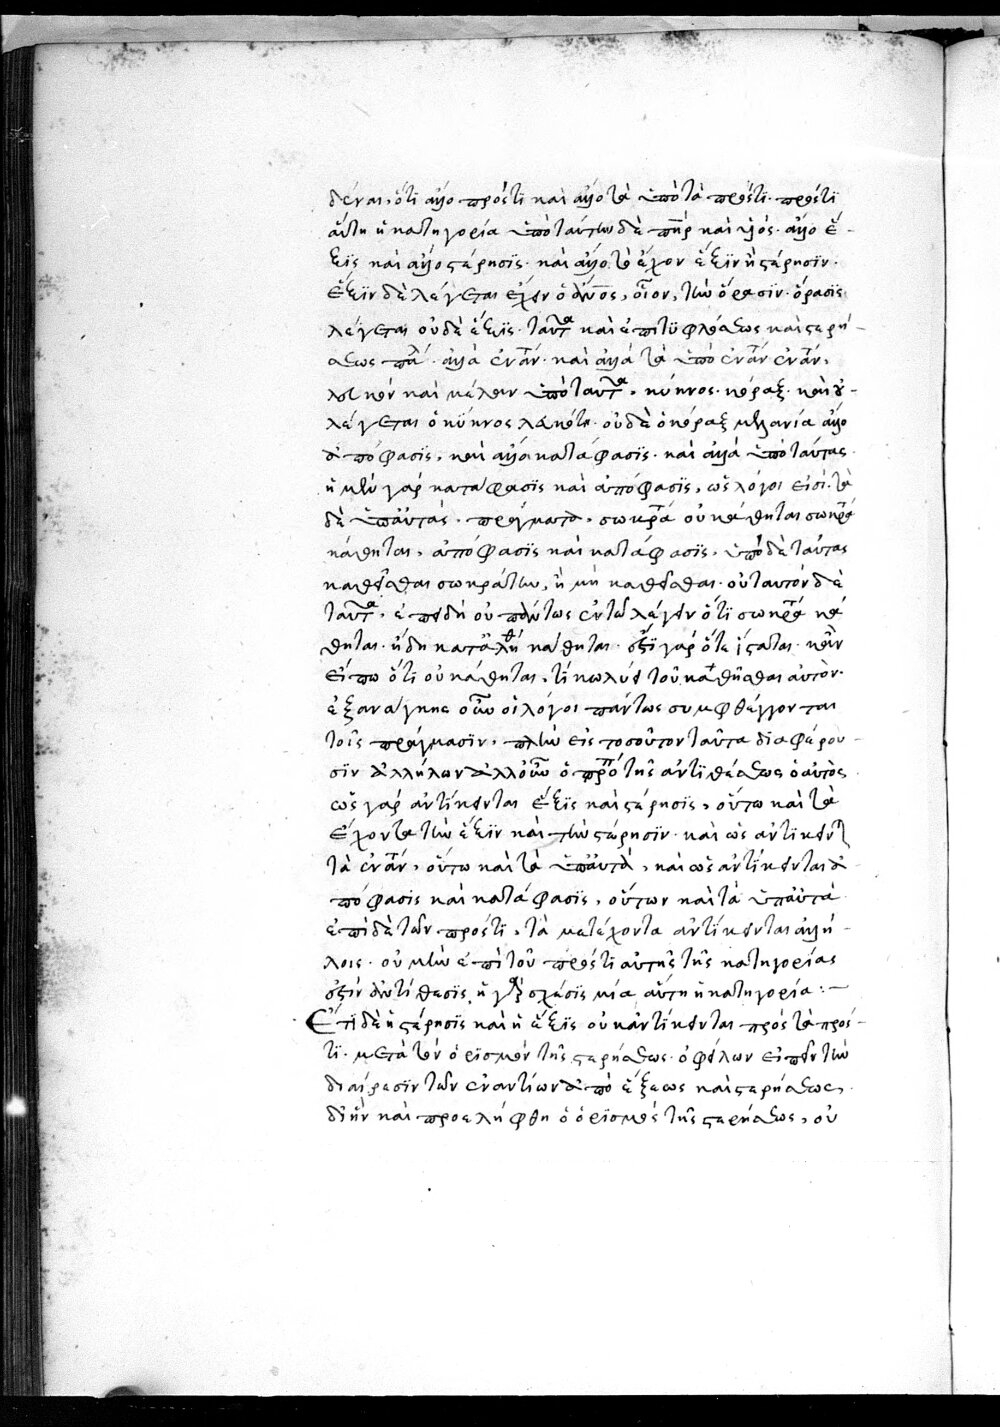 δέναι, ὅτι ἄλλο πρός τι καὶ ἄλλο τὰ ὑπὸ τὰ πρός τι· πρός τι
αὕτη ἡ κατηγορία ὑπὸ ταύτην δὲ πὴρ καὶ υἱός· ἄλλο ἕ-
ξις καὶ ἄλλο στέρησις· καὶ ἄλλο τὸ ἔχον ἕξιν ἢ στέρησιν·
ἕξιν δὲ λέγεται ἔχειν ὁ ἄνος, οἷον, τὴν ὅρασιν· ὅρασις
λέγεται οὐδὲ ἕξις· ταῦτα καὶ ἐπὶ τυφλώσεως καὶ στερή-
σεως πά· ἄλλα ἐναν· καὶ ἄλλα τὰ ὑπὸ ἐναν ἐναν,
λευκὸν καὶ μέλαν ὑπὸ ταῦτα, κύκνος· κόραξ· καὶ οὐ
λέγεται ὁ κύκνος λευκότης· οὐδὲ ὁ κόραξ μελανία ἄλλο
ἀπόφασις, καὶ ἄλλο κατάφασις· καὶ ἄλλα ὑπὸ ταύτας·
ἡ μὲν γὰρ κατάφασις καὶ ἀπόφασις, ὡς λόγοι εἰσί· τὰ
δὲ ὑπ' αὐτὰς, πράγματα, σωκρά οὐ κάθηται σωκρά
κάθηται, ἀπόφασις καὶ κατάφασις, ὑπὸ δὲ ταύτας
καθέσθαι σωκράτην, ἢ μὴ καθέσθαι· οὐ ταυτὸν δὲ
ταῦτα, ἐπειδὴ οὐ πάντως ἐν τῶ λέγειν ὅτι σωκρά κά
θηται· ἤδη κατ' ἀλήθ κάθηται· ἔστι γὰρ ὅτε ἵσταται· κἂν
εἴπω ὅτι οὐ κάθηται, τί κωλύει τοῦ καθῆσθαι αὐτόν·
ἐξ ἀνάγκης οὖν οἱ λόγοι πάντως συμφθέγγονται
τοῖς πράγμασιν, πλὴν εἰς τοσοῦτον ταῦτα διαφέρου-
σιν ἀλλήλων ἀλλ' οὖν ὁ τρόπ τῆς ἀντιθέσεως ὁ αὐτὸς
ὡς γὰρ ἀντίκειται ἕξις καὶ στέρησις, οὕτω καὶ τὰ
ἔχοντα τὴν ἕξιν καὶ τὴν στέρησιν· καὶ ὡς ἀντίκειντ
τὰ ἐναν, οὕτω καὶ τὰ ὑπ' αὐτὰ, καὶ ὡς ἀντίκειται ἀ
πόφασις καὶ κατάφασις, οὕτων καὶ τὰ ὑπ' αὐτὰ
ἐπὶ δὲ τῶν πρός τι, τὰ μετέχοντα ἀντίκεινται ἀλλή-
λοις· οὐ μὴν ἐπὶ τοῦ πρός τι αὐτῆς τῆς κατηγορίας
ἐστὶν ἀντίθεσις, ἡ γὰρ σχέσις μία αὕτη ἡ κατηγορία:-
Ἔτι δὲ ἡ στέρησις καὶ ἡ ἕξις οὐκ ἀντίκεινται πρὸς τὰ πρός
τι· μετὰ τὸν ὁρισμὸν τῆς στερήσεως· ὀφείλων εἰπεῖν τὴν
διαίρεσιν τῶν ἐναντίων ἀπὸ ἕξεως καὶ στερήσεως,
δι' ἣν καὶ προελήφθη ὁ ὁρισμὸς τῆς στερήσεως, οὐ